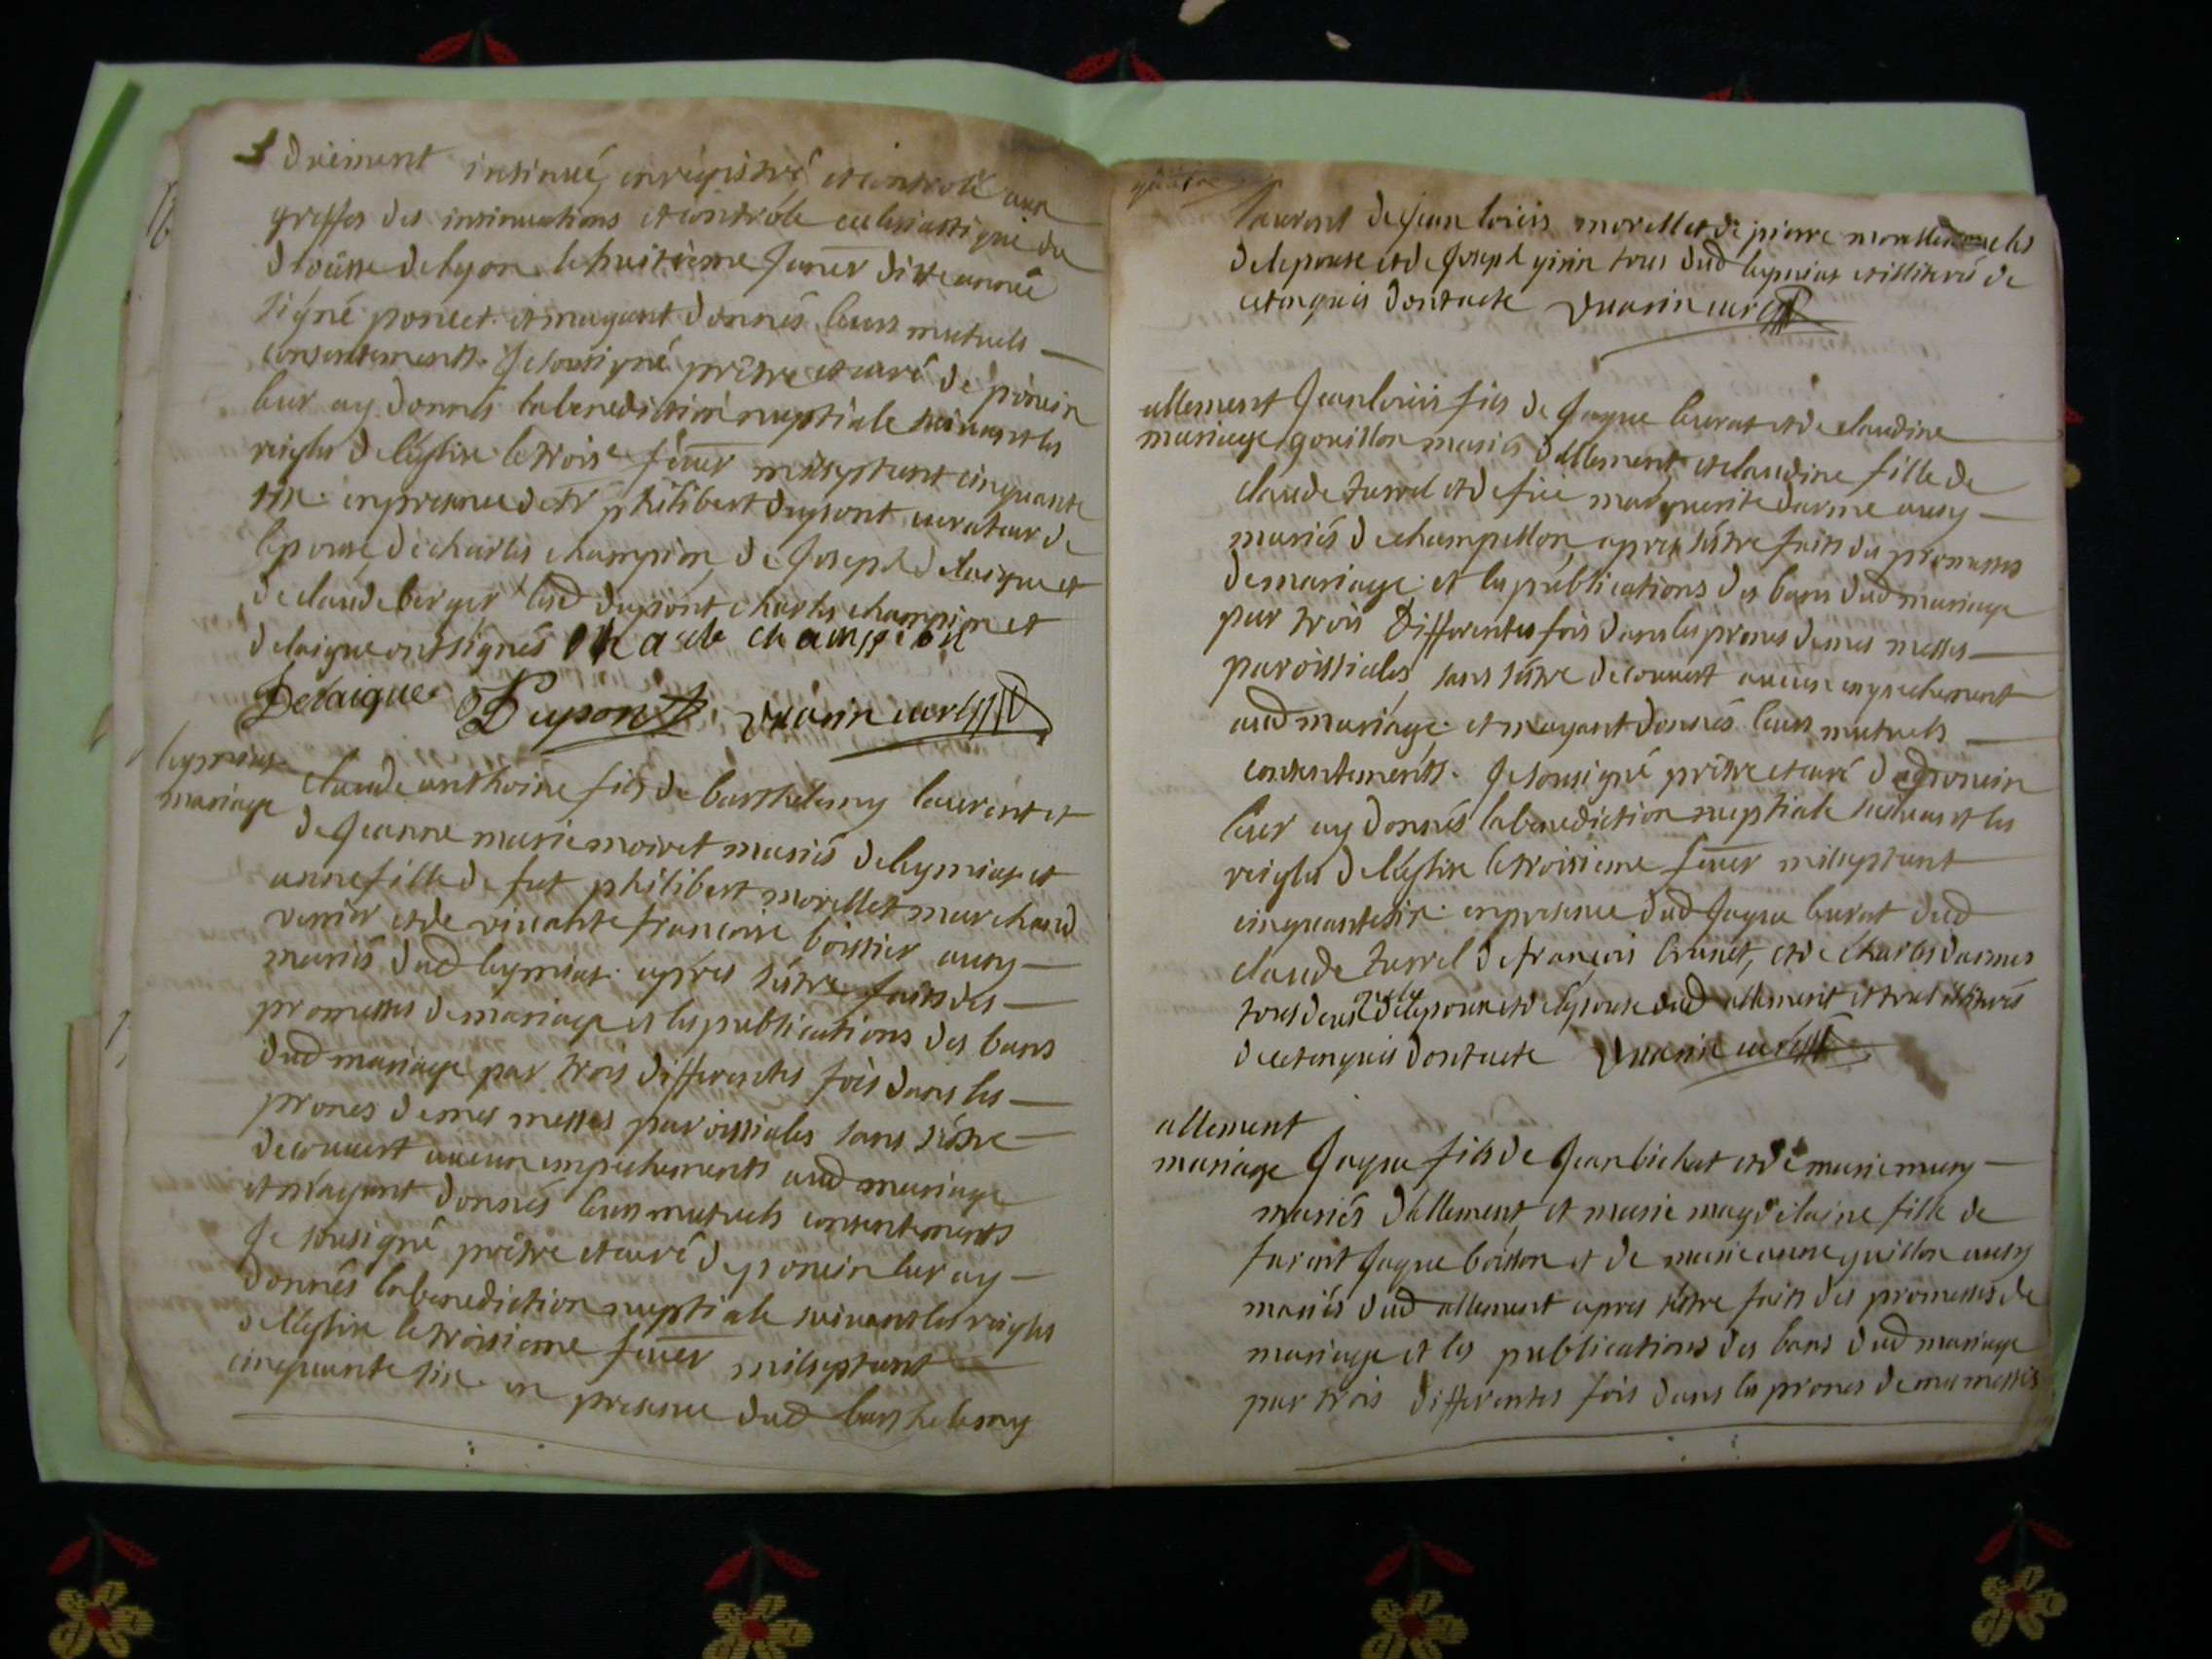 duement insinué, enrégistré, et controlé aux
greffes des insinuations et contrôle eclesiastique du
dioûsse de lyon le huitieme janer ditte année
signé poncet. et mayant donnés leurs mutuels
consentements. Je sousigné prêtre et curé de poncin
leur ay donnés la benediction nuptiale suivant les
reigles de l'église le trois.e féuer mil sept cent cinquante
six. en presence de sr philibert dupont curateur de
lepouse, de charles champion, de Joseph delaigue et
de claude berger lesd dupont charles champion et
delaigue ont signés Charle champion
Delaigue Dupont curé
leymiat
mariage
claude anthoine fils de barthelemy laurent et
de Jeanne marie moiret mariés de leymiat et
anne fille de fut philibert morellet marchand
verrier et de vivante francoise boissier aussy
mariés dud leymiat. aprés s'éstre faits des
promesses de mariage et les publications des bans
dud mariage par trois differentes fois dans les
prones de mes messes paroissiales sans s'éstre
decouvert aucun empechements aud mariage
et m'ayant donnés leurs mutuels consentements
Je sousigné prêtre et curé de poncin leur ay
donnés la benediction nuptiale suivant les reigles
de l'église le troisieme féuer mil sept cent
cinquante six. en presence dud barthelemy
laurent de Jean loüis morellet de pierre morellet
de lepouse et de Joseph girin tous dud leymiat et illiterés de
ce enquis dont acte curé
allement
mariage
Jean loüis fils de Jaque leurat et de claudine
gouillon mariés d'allement, et claudine fille de
claude turrel et de füe marguerite darme aussy
mariés de champellon, apres s'éstre faits des promesses
de mariage. et les publications des bans dud mariage
par trois differentes fois dans les prones de mes messes
paroissiales, sans s'éstre decouvert aucun empechement
aud mariage. et m'ayant donnés leurs mutuels
consentements. Je sousigné prêtre et curé de poncin
leur ay donnés la benediction nuptiale suivant les
reigles de l'église le troisieme féuer mil sept cent
cinquante six. en presence dud Jaque leurat dud
claude turrel de françois brunet, et de charles darmes
tous deux de lepoux et de lepouse dud allement et tous illiterés
de ce enquis dont acte curé
allement
mariage
Jaque fils de Jean bichat et de marie mary
mariés d'allement, et marie magdelaine fille de
fut Jaque boisson et de marie anne guillon aussy
mariés dud allement apres s'éstre faits des promesses de
mariage et les publications des bans dud mariage
par trois differentes fois dans les prones de mes messes